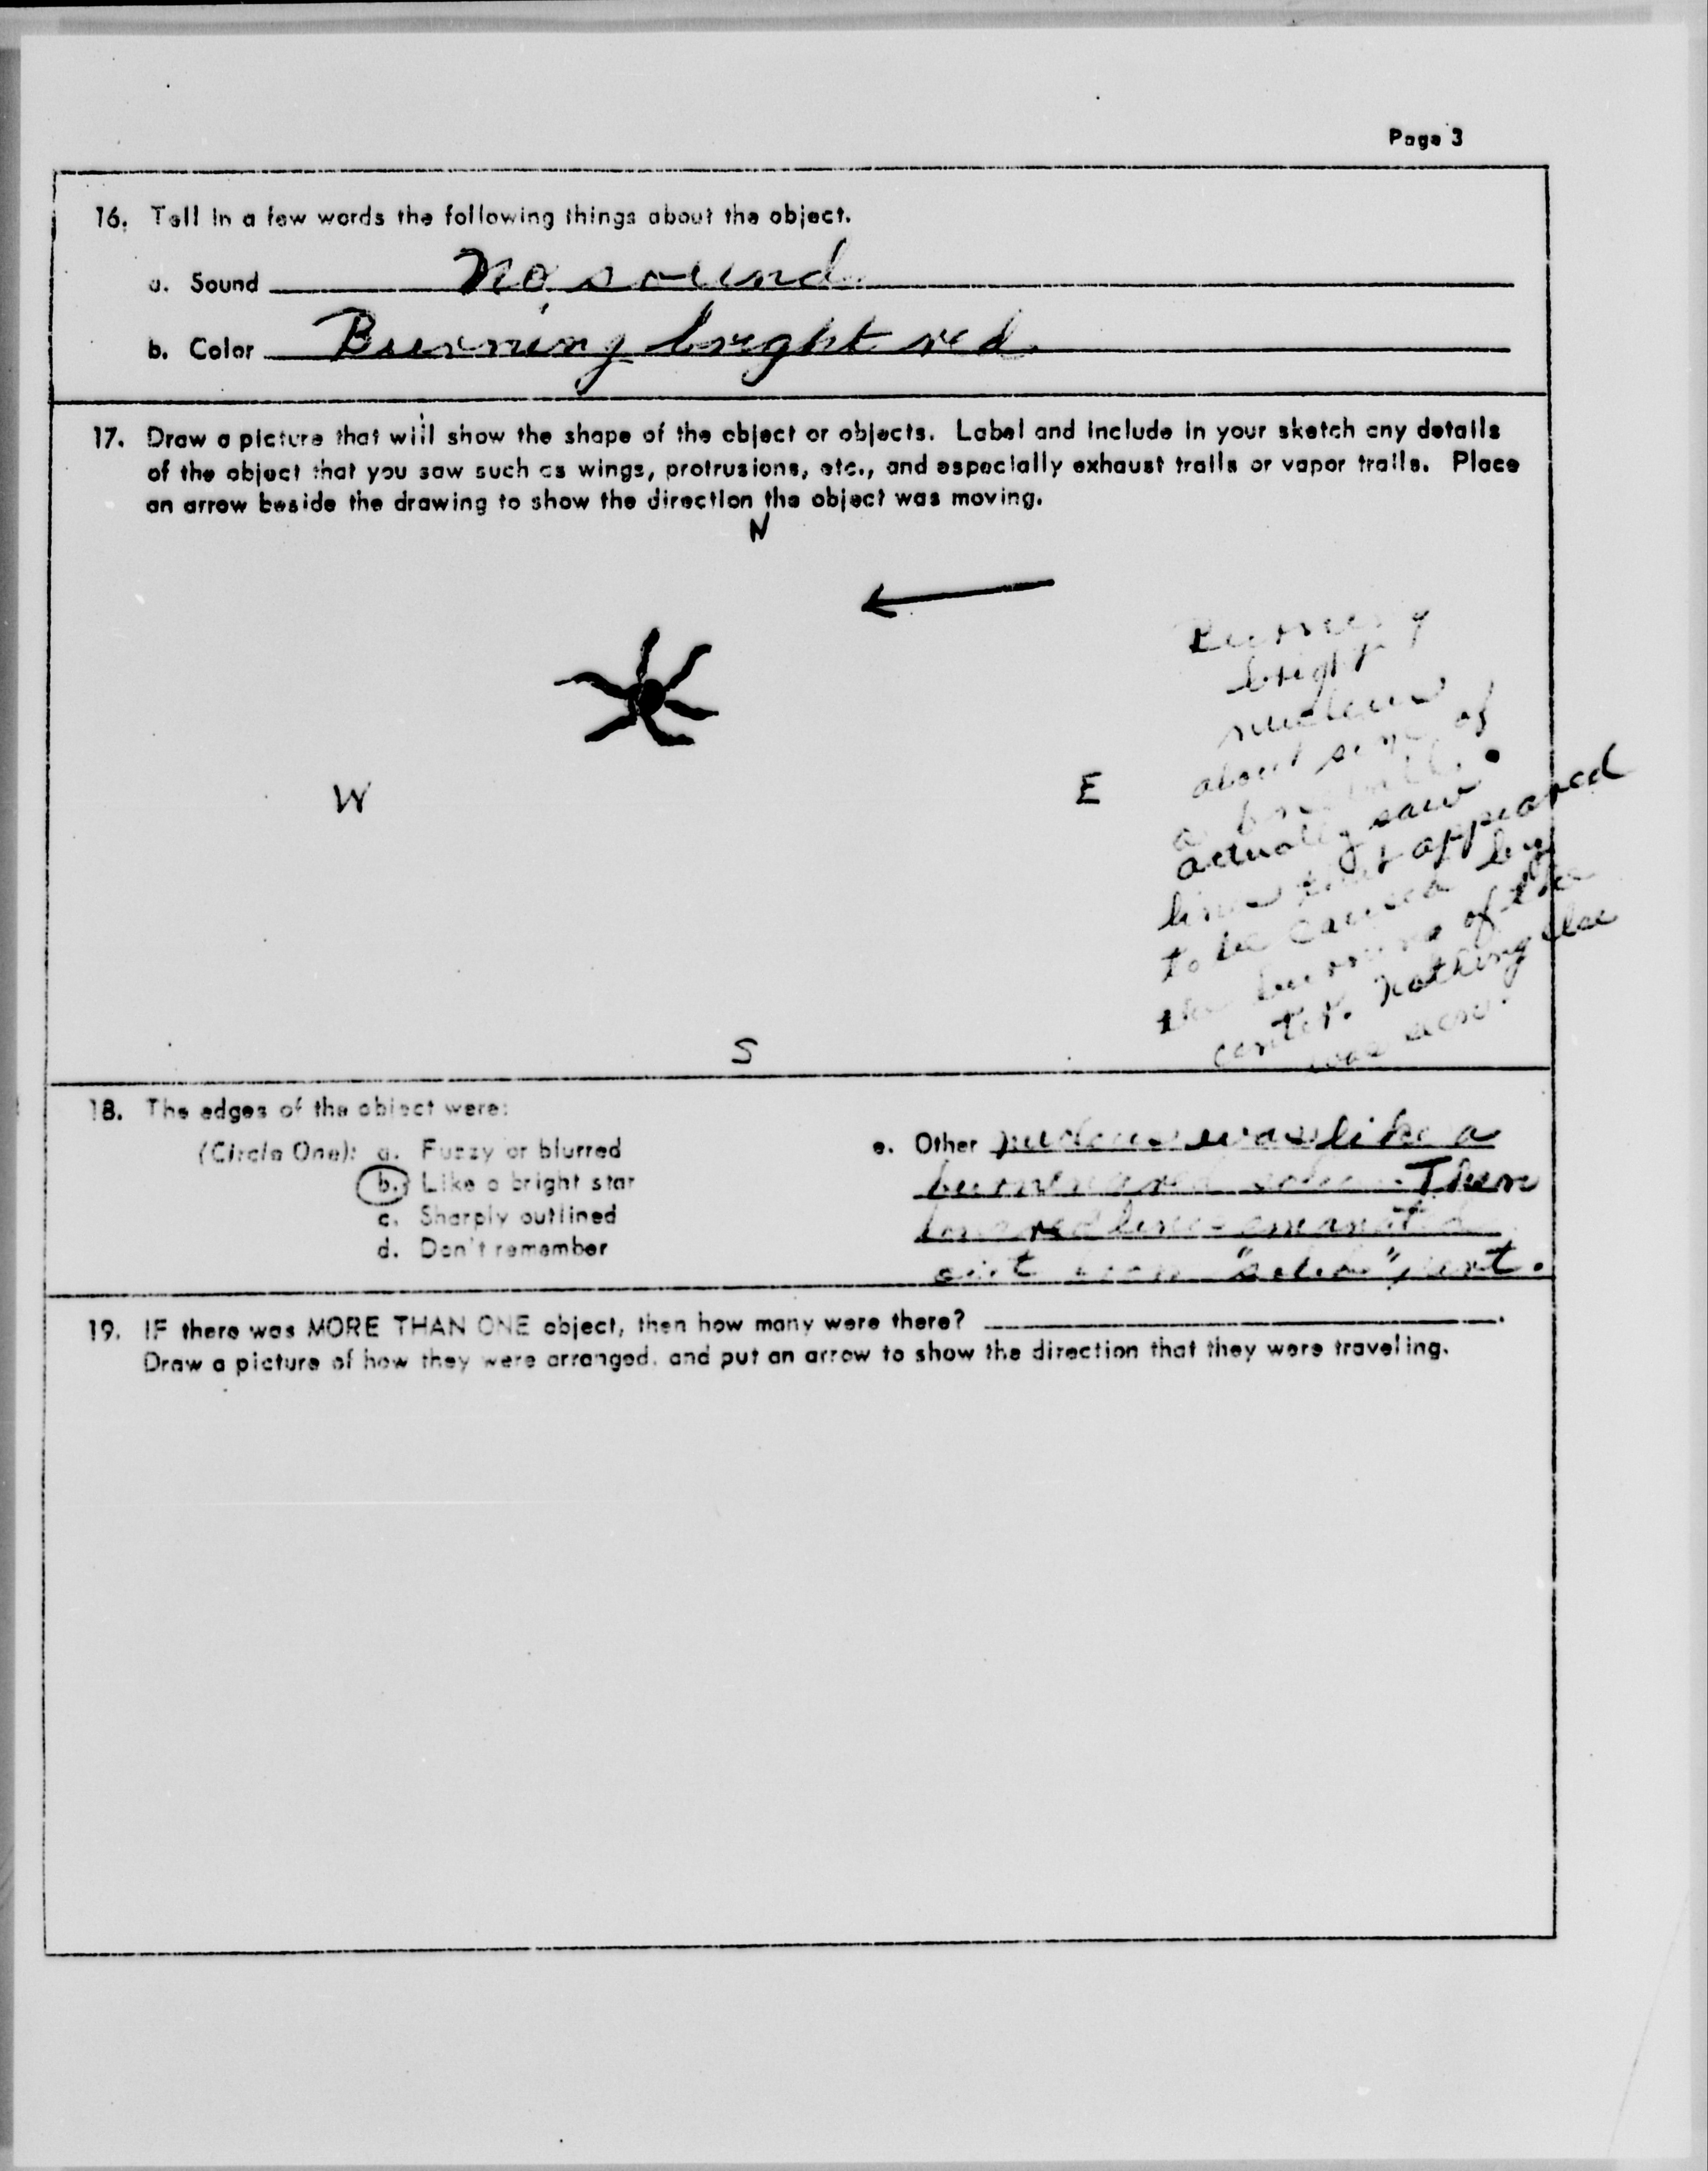 Page 3
16. Tell in a few words the following things about the object.
a. Sound No sound
b. Color Burning bright red.
17. Draw a picture that will show the shape of the object or objects. Label and include in your sketch any details
of the object that you saw such as wings, protrusions, etc., and especially exhaust trails or vapor trails. Place
an arrow beside the drawing to show the direction the object was moving.
N
W
E
S
Burning
bright
nucleus
about size of
a
actually saw
lines that appeared
to be caused by
the burning of the
center. Nothing else
was seen.
18. The edges of the object were:
(Circle One): a. Fuzzy or blurred
b. Like a bright star
c. Sharply outlined
d. Don't remember
e. Other nucleus was like a
burning red Then
red lines emanated
out from "solid" part.
19. IF there was MORE THAN ONE object, then how many were there?
Draw a picture of how they were arranged, and put an arrow to show the direction that they were traveling.